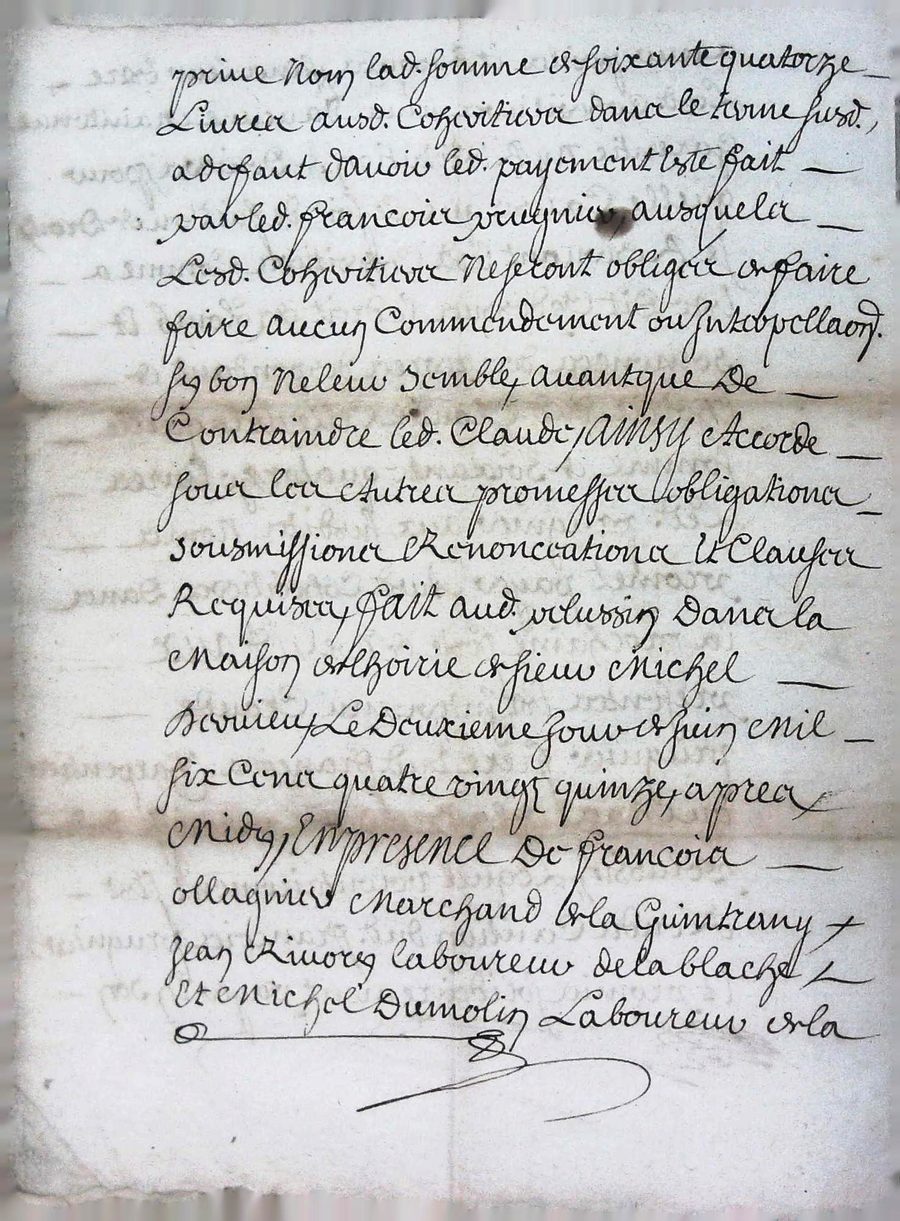 prive Nom lad. somme de soixante quatorze
Livres ausd. Coheritiers dans le terme susd.,
a defaut davoir led. payement Este fait
par led. francois prugnier, ausquels
Lesd. Coheritiers Ne seront obliges de faire
faire aucun Commendement ou Interpellaon.
sy bon Ne leur semble, avant que De
Contraindre led. Claude, AINSY Accorde
sous les Autres promesses obligations
sousmissions Renonceations Et Clauses
Requises, fait aud. pelussin Dans la
Maison de lhoirie de sieur Michel
Dervieu, Le Deuxieme Jour de Juin Mil
six Cens quatre vingt quinze, apres
Midy, EN PRESENCE De francois
ollagnier Marchand de la Guintrany
Jean Rivory laboureur de la blache
Et Michel Dumolin Laboureur de la